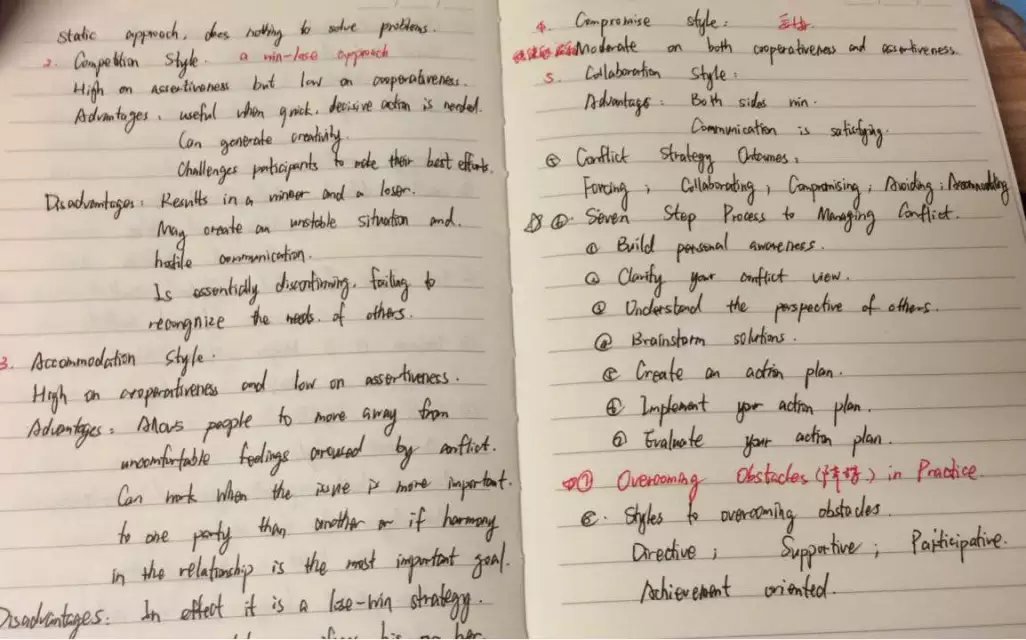 Static approach, does nothing to solve problems.
2. Competition Style. a win-lose approach
High on assertiveness but low on cooperativeness.
Advantages: useful when quick, decisive action is needed.
Can generate creativity.
Challenges participants to make their best efforts.
Disadvantages: Results in a winner and a loser.
May create an unstable situation and.
hostile communication.
Is essentially disconfirming, failing to
recongnize the needs of others.
3. Accommodation Style.
High on cooperativeness and low on assertiveness.
Advantages: Allows people to move away from
uncomfortable feelings aroused by conflict.
Can work when the issue is more important.
to one party than another or if harmony
in the relationship is the most important goal.
Disadvantages: In effect it is a lose-win strategy.
his or her
4. Compromise style:
Moderate on both cooperativeness and assertiveness.
5. Collaboration Style:
Advantage: Both sides win.
Communication is satisfying.
Conflict Strategy Outcomes:
Forcing; Collaborating, Compromising; Avoiding; Accomodating
Seven Step Process to Managing Conflict.
① Build personal awareness.
② Clarify your conflict view.
③ Understand the perspective of others.
④ Brainstorm solutions.
⑤ Create an action plan.
⑥ Implement your action plan.
⑦ Evaluate your action plan.
⑦ Overcoming Obstacles (障碍) in Practice.
Styles to overcoming obstacles.
Directive; Supportive; Participative.
Achievement oriented.